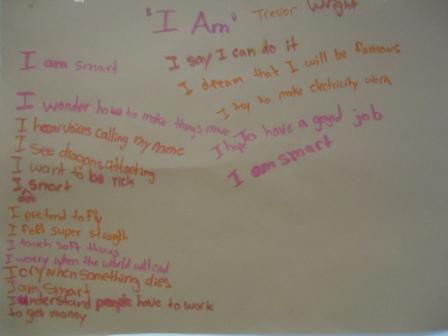 "I Am" Trevor Wright
I am smart
I wonder how to make things move
I hear voices calling my name
I see dragons attacting
I want to be rich
I am smart
I pretend to fly
I feel super strength
I touch soft things
I worry when the world will end
I cry when something dies
I am smart
I understand people have to work
to get money
I say I can do it
I dream that I will be famous
I try to make electricity work
I hope To have a good job
I am smart